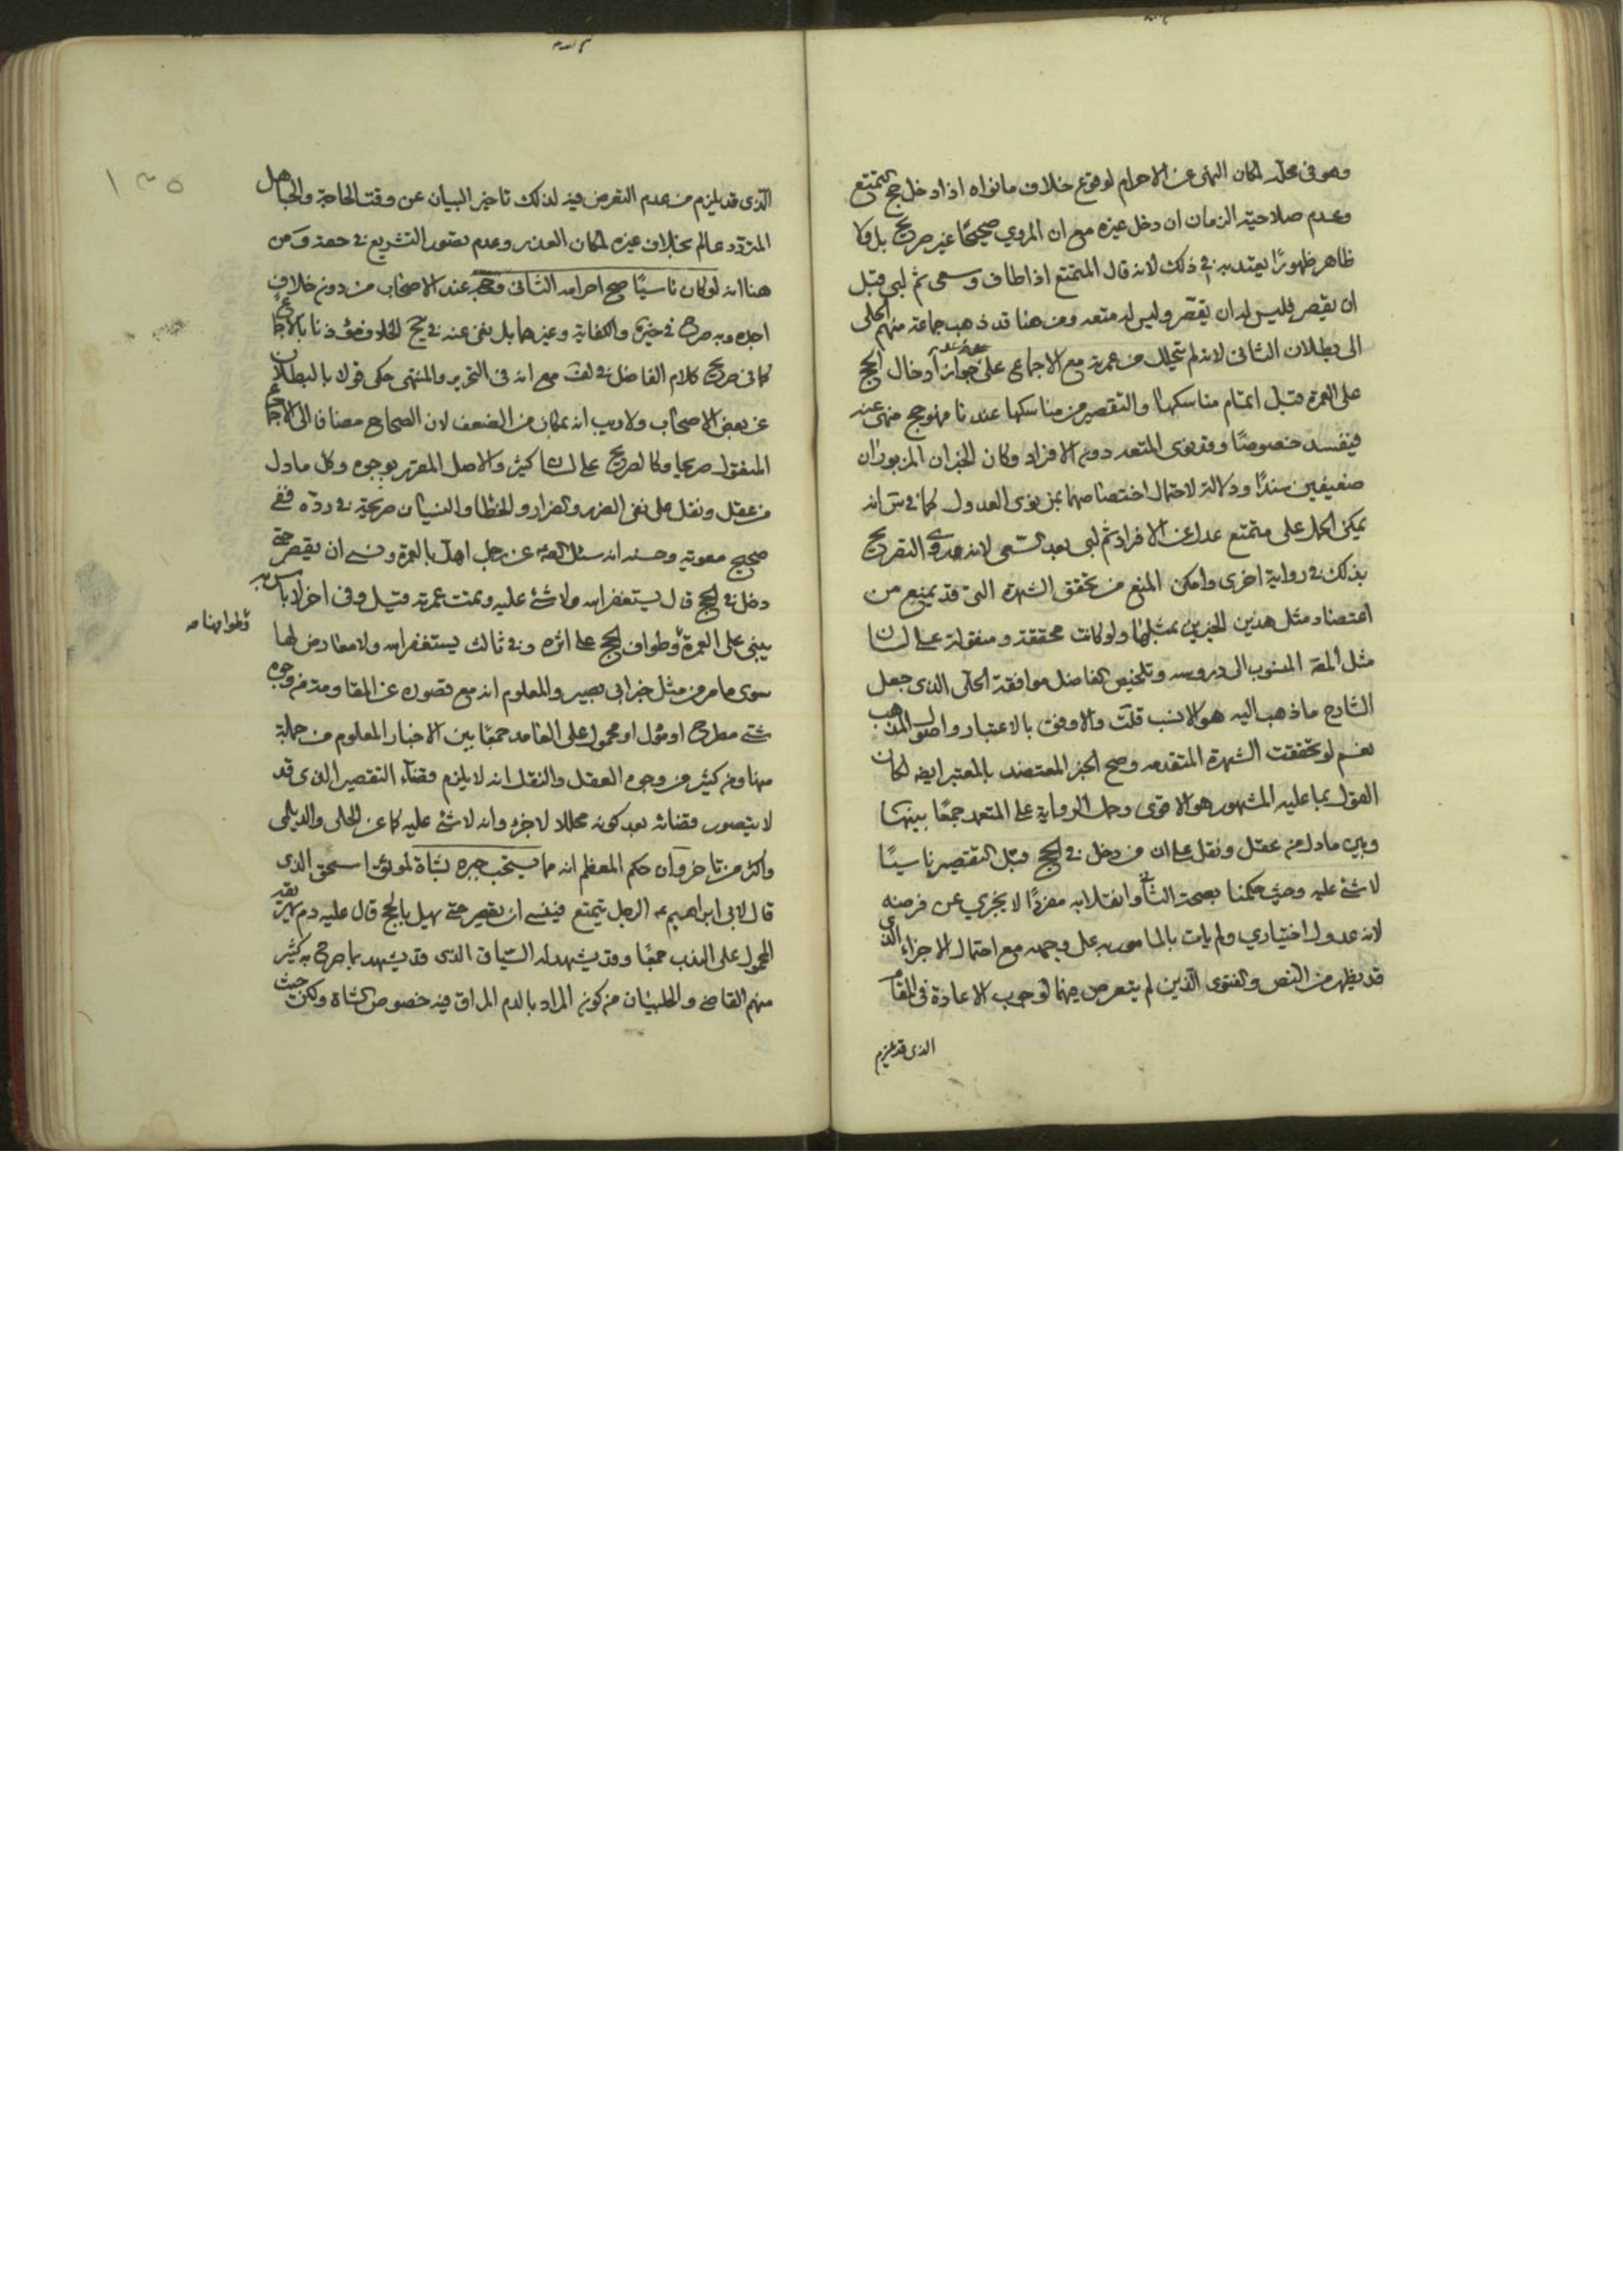 وهو في محله لمكان النهي عن الاحرام لوقوع خلاف ما نواه اذا دخل حج التمتع
وعدم صلاحية الزمان ان دخل غيره مع ان المروي صحيحًا غير صريح بل ولا
ظاهر ظهورًا يعتد به في ذلك لانه قال المتمتع اذا طاف وسعى ثم لبى قبل
ان يقصر فليس له ان يقصر وليس له متعه ومن هنا قد ذهب جماعة منهم الحلي
الى بطلان الثاني لانه لم يتحلل من عمرته مع الاجماع على عدم جواز ادخال الحج
على العمرة قبل اتمام مناسكها والتقصير من مناسكها عندنا فهو حج منهي عنه
فيفسد خصوصًا وقد نوى المتعه دون الافراد وكان الخبران المزبوران
ضعيفين سندًا ودلالة لاحتمال اختصاصهما بمن نوى العدول كما في س انه
يمكن الحمل على متمتع عدل عن الافراد ثم لبى بعد السعي لانه روى التصريح
بذلك في رواية اخرى وامكن المنع من تحقق الشهرة التي قد يمنع من
اعتضاد مثل هذين الخبرين بمثلها ولو كانت محققة ومنقولة على لسان
مثل اللمعة المنسوب الى دروسه وتلخيص الفاضل موافقة الحلي الذي جعل
الشارح ما ذهب اليه هو الانسب قلت والاوفق بالاعتبار واصول المذهب
نعم لو تحققت الشهرة المتقدمه وصح الخبر المعتضد بالمعتبر ايضه لكان
القول بما عليه المشهور هو الاقوى وحمل الرواية على المتعمد جمعًا بينها
وبين ما دل من عقل ونقل على ان من دخل في الحج قبل التقصير ناسيًا
لا شئ عليه وحيث حكمنا بصحة الثاني وانقلابه مفردًا لا يجزي عن فرضه
لانه عدول اختياري ولم يات بالمامور به على وجهه مع احتمال الاجزاء الذي
قد يظهر من النص والفتوى الذين لم يتعرض فيهما لوجوب الاعادة في المقام
الذي قد يلزم
الذي قد يلزم من عدم التعرض فيه لذلك تاخير البيان عن وقت الحاجة والجاهل
المتردد عالم بخلاف غيره لمكان العذر وعدم تصور التشريع في حقه ومن
هنا انه لو كان ناسيًا صح احرامه الثاني وحجه عند الاصحاب من دون خلاف
اجده وبه صرح في خيره والكفاية وغيرهما بل نفى عنه في يح الخلاف مؤذنا بالاجماع
كما في صريح كلام الفاضل في لف مع انه في التحرير والمنتهى حكى قولا بالبطلان
عن بعض الاصحاب ولا ريب انه بمكان من الضعف لان الصحاح مضافا الى الاجماع
المنقول صريحا وكالصريح على لسان كثير والاصل المقرر بوجوه وكل ما دل
من عقل ونقل على نفي الضرر والضرار والخطا والنسيان صريحة في رده ففي
صحيح معوية وحسنه انه سئل الصه عن رجل اهل بالعمرة ونسي ان يقصر حتى
دخل في الحج قال يستغفر الله ولا شئ عليه وتمت عمرته قيل وفي اخر لا باس به
يبني على العمرة وطواف الحج على اثره وفي ثالث يستغفر الله ولا معارض لها
وطوافها
سوى ما مر من مثل خبر ابي بصير والمعلوم انه مع قصوره عن المقاومة من وجوه
شتى مطرح او مؤل او محمول على العامد جمعًا بين الاخبار المعلوم من جملة
منها ومن كثير من وجوه العقل والنقل انه لا يلزم قضاء التقصير الذي قد
لا يتصور قضائه بعد كونه محللا لا جزء وانه لا شئ عليه كما عن الحلي والديلمي
واكثر من تاخر وان حكم المعظم انه مما يستحب جبره بشاة لموثق اسحق الذي
قال لابي ابراهيم ع الرجل يتمتع فينسى ان يقصر حتى يهل بالحج قال عليه دم يهريقه
المحمول على الندب جمعًا وقد يشهد له السياق الذي قد يشهد بما صرح به كثير
منهم القاضي والحلبيان من كون المراد بالدم المراق فيه خصوص الشاة ولكن حيث